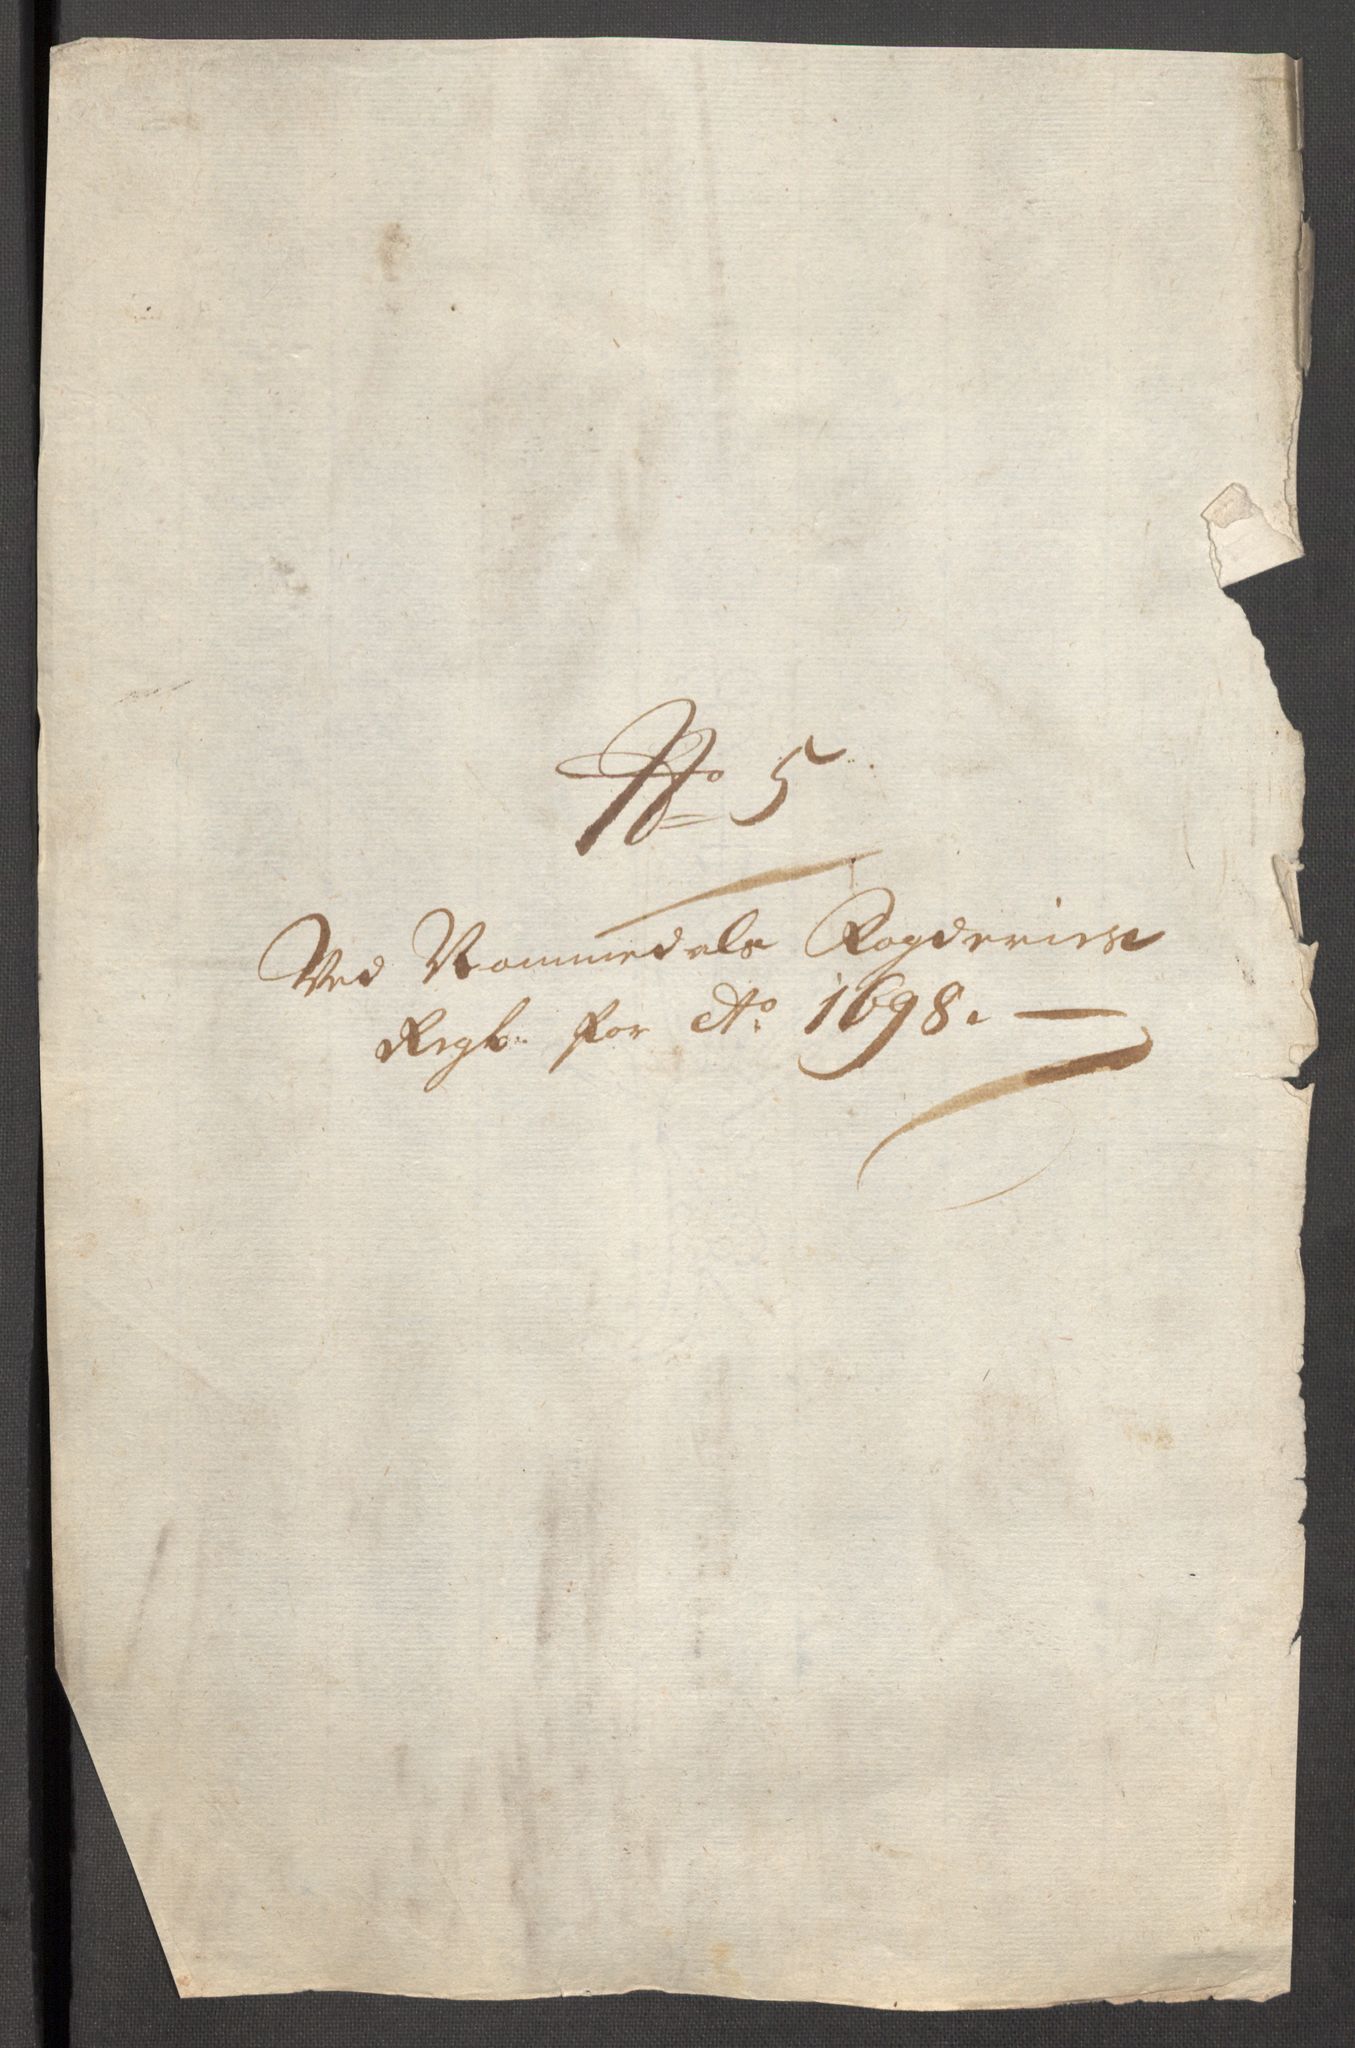 No 5
Ved Nommedals Fogderies
Regb: for Ao 1698.